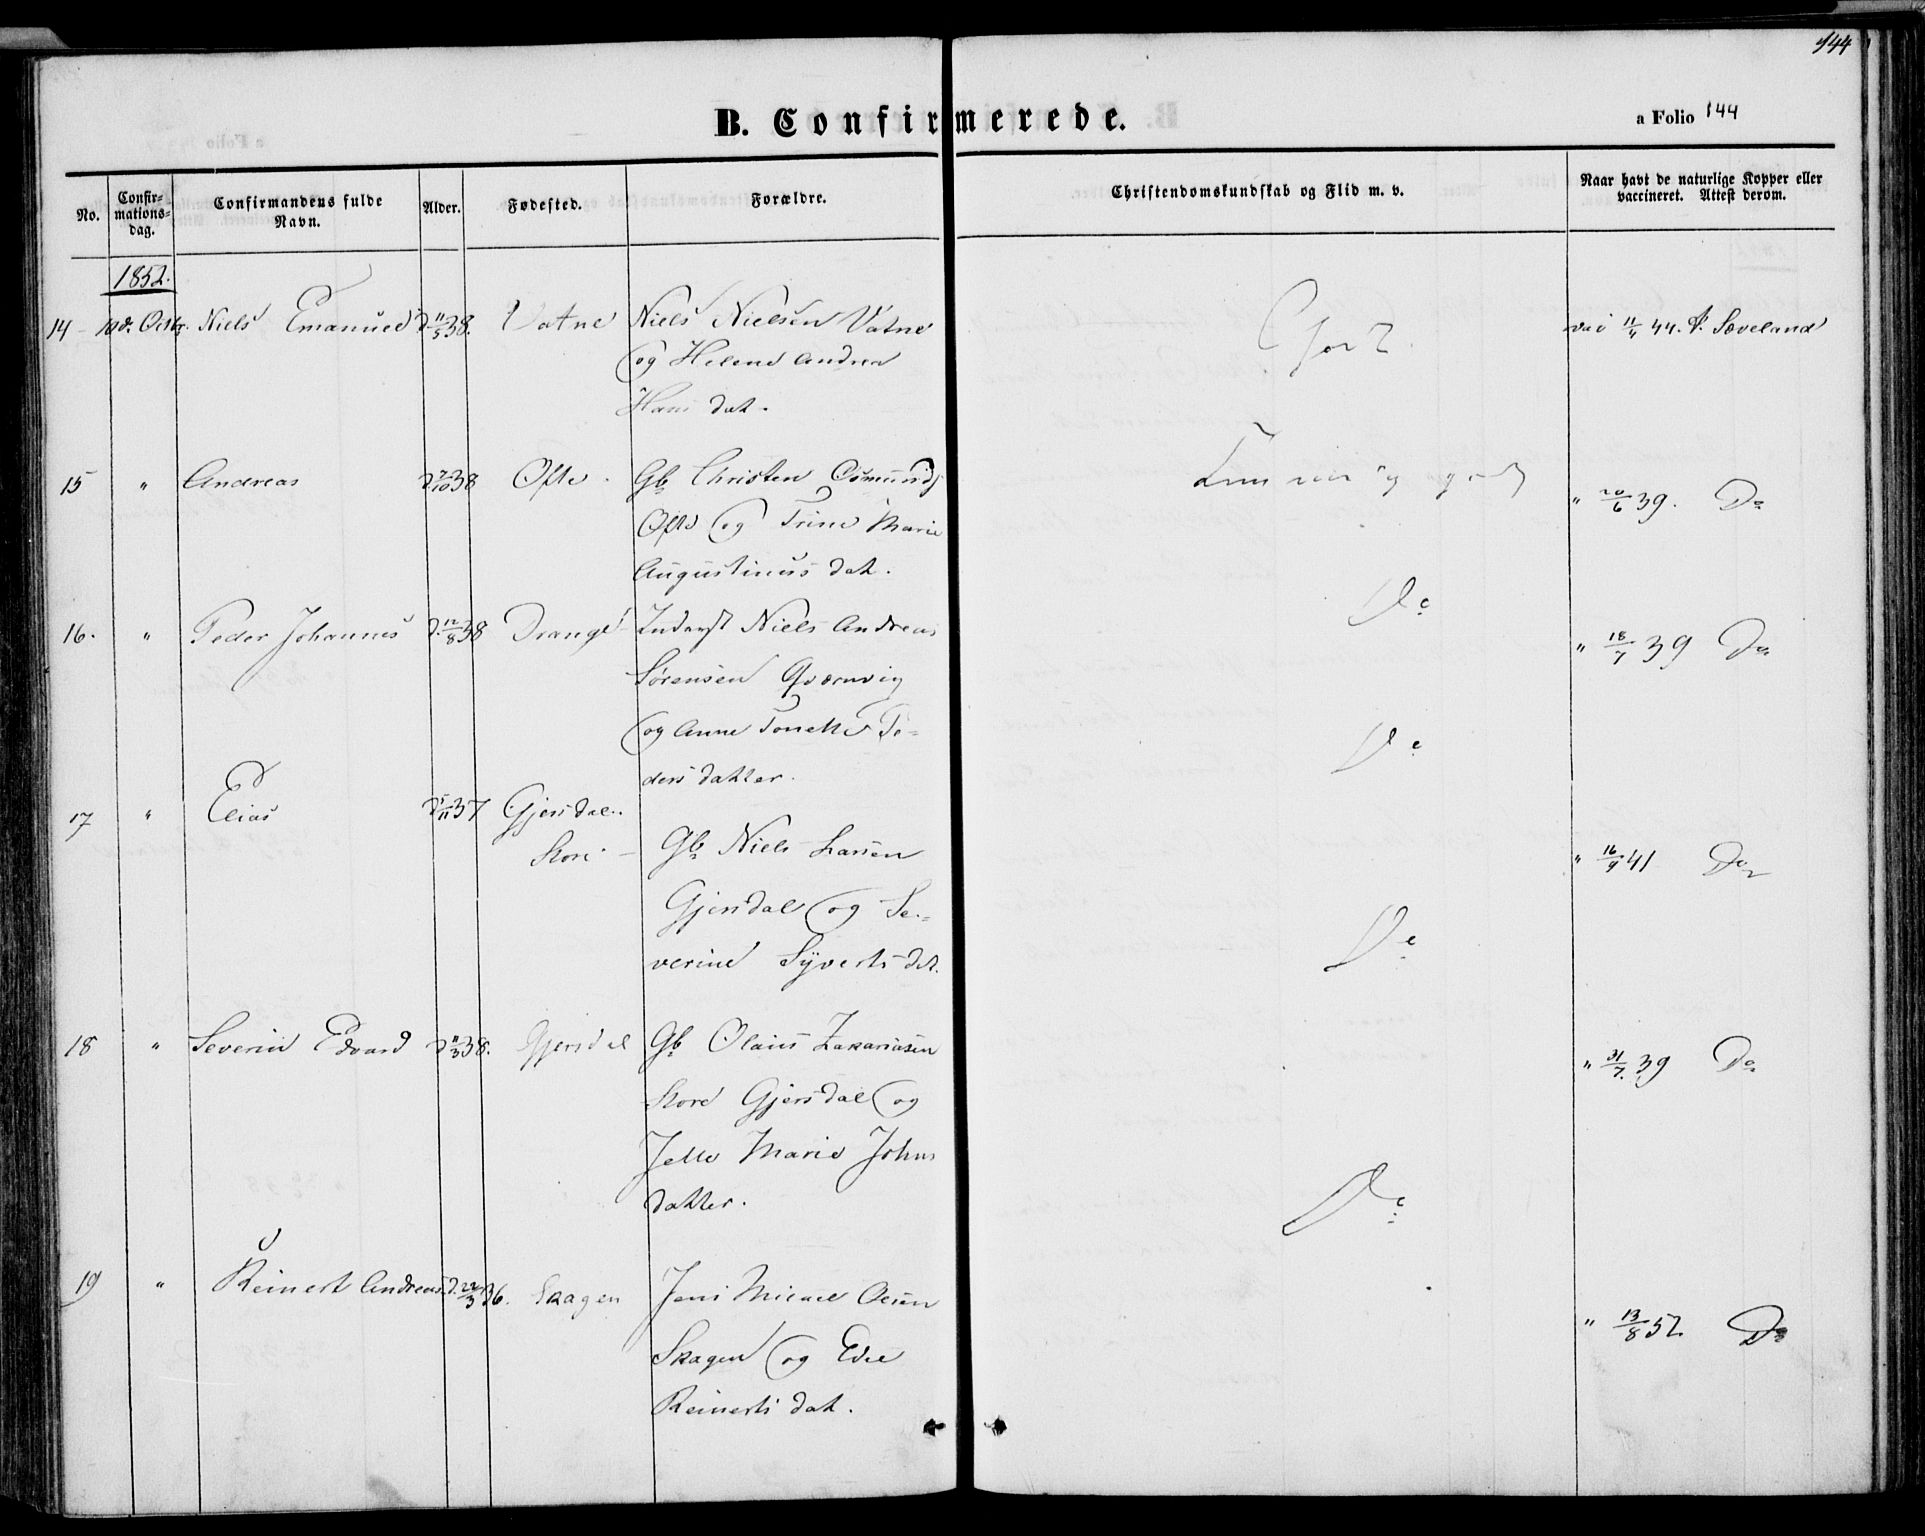 144
B. Confirmerede.
a Folio 144
No.
Confirmations-dag.
Confirmandens fulde Navn.
Alder.
Fødested.
Forældre.
Christendomskundskab og Flid m. v.
Naar havt de naturlige Kopper eller vaccineret. Attest derom.
1852.
14 Niels Emanuel 11/5 38. Vatne Niels Nielsen Vatne
og Helene Andrea
Hans dat.
Godt
vac 11/4 44. Søveland
15 " Andreas 7/10 38 Ofte. Gb Christen Osmunds
Ofte og Trine Marie
Augustinus dat.
" 20/6 39. Do
16. " Peder Johannes 12/8 38 Drange Inderst Niels Andreas
Sørensen Qværnvig
og Anne Tonette Pe=
ders datter.
Do
" 18/7 39 Do
17 " Elias 5/11 37 Gjersdal
Store
Gb Niels Larsen
Gjersdal og Se=
verine Syverts dat.
Do
" 16/9 41 Do
18 " Severin Edvard 11/3 38. Gjersdal Gb Olaus Zakariasen
Store Gjersdal og
Jette Marie Johns
datter.
Do
" 31/7 39 Do
19 " Reinert Andreas 22/3 36. Skagen Jens Micael Olsen
Skagen og Edle
Reinerts dat.
Do
" 13/8 52 Do